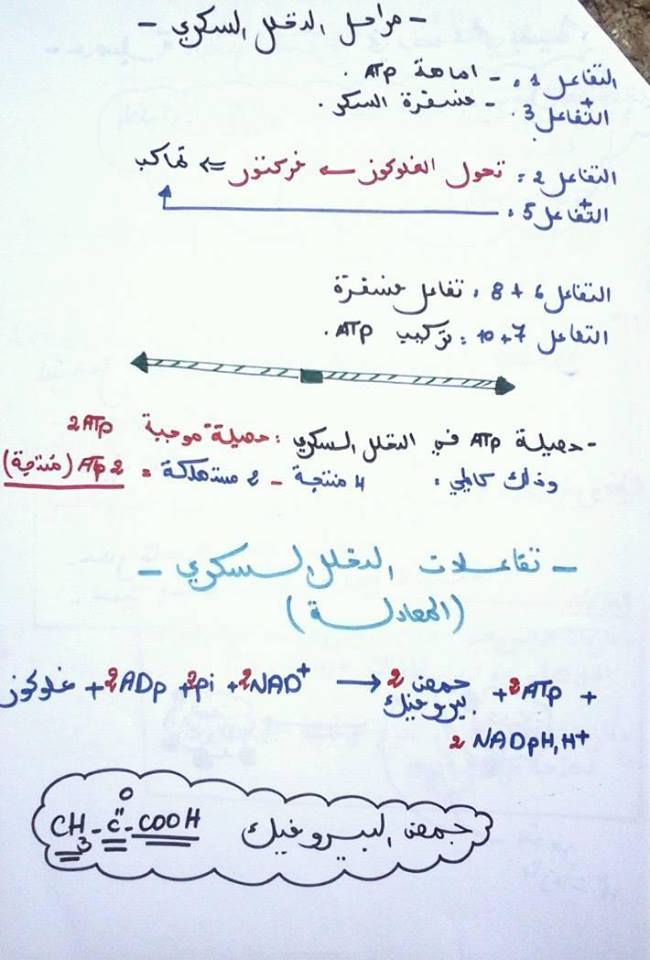 - مراحل التحلل السكري -
التفاعل 1 : - اماهة ATP .
+
التفاعل 3 . - فسفرة السكر .
التفاعل 2 : تحول الغلوكوز ← فركتوز ⇐ تماكب
+
التفاعل 5 :
التفاعل 6 + 8 : تفاعل فسفرة
التفاعل 7 + 10 : تركيب ATP .
- حصيلة ATP في التحلل السكري : حصيلة موجبة 2ATP
وذلك كمايلي : 4 منتجة - 2 مستهلكة = 2 ATP (مُنتَجة)
- تفاعلات التحلل السكري -
(المعادلة)
غلوكوز + 2ADP + 2pi + 2NAD+ → 2 حمض بيروفيك + 2ATP +
2 NADPH,H+
O
CH3 - C - COOH حمض البيروفيك